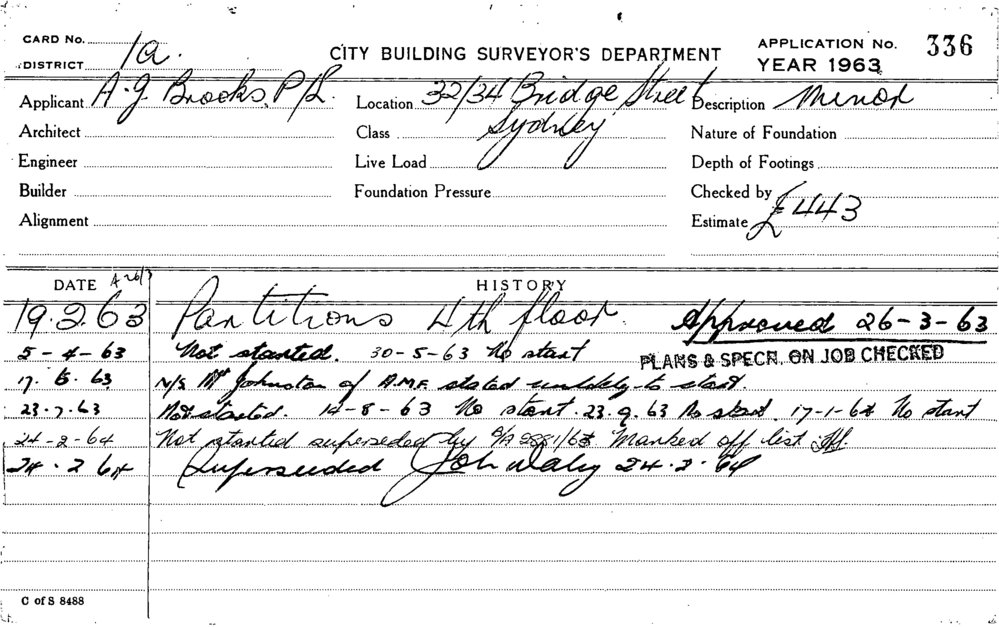 CARD No. 1a.
DISTRICT
CITY BUILDING SURVEYOR'S DEPARTMENT
APPLICATION No. 336
YEAR 1963
Applicant A. J. Brooks, P/L. Location 32/34 Bridge Street Description Minor
Sydney
Architect Class Nature of Foundation
Engineer Live Load Depth of Footings
Builder Foundation Pressure Checked by
Alignment Estimate £443
DATE HISTORY
19.2.63 Partitions 4th floor. Approved 26-3-63
5-4-63 Not started. 30-5-63 No start PLANS & SPECN. ON JOB CHECKED
17.6.63 N/S Mr Johnston of A.M.F. stated unlikely to start.
23.7.63 Not started. 14-8-63 No start. 23.9.63 No start. 17-1-64 No start
24-2-64 Not started superseded by Marked off list
24.2.64 Superseded 24.2.64
C of S 8488